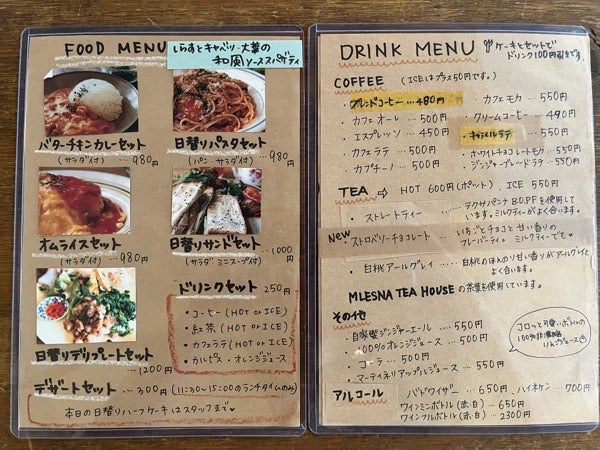 FOOD MENU
しらすとキャベツ・大葉の
和風ソーススパゲティ
バターチキンカレーセット
(サラダ付) ・・・ 980円
日替りパスタセット
(パン・サラダ付) ・・・ 980円
オムライスセット
(サラダ付) ・・・ 980円
日替りサンドセット
(サラダ・ミニスープ付) ・・・ 1000円
日替りデリプレートセット
・・・ 1200円
ドリンクセット 250円
・コーヒー (HOT or ICE)
・紅茶 (HOT or ICE)
・カフェラテ (HOT or ICE)
・カルピス・オレンジジュース
デザートセット ・・・ 300円 (11:30~15:00のランチタイムのみ)
本日の日替りハーフケーキはスタッフまで♥
DRINK MENU
ケーキとセットで
ドリンク100円引きです
COFFEE (ICEはプラス50円です。)
・ブレンドコーヒー ・・・ 480円
・カフェオーレ ・・・ 500円
・エスプレッソ ・・・ 450円
・カフェラテ ・・・ 500円
・カプチーノ ・・・ 500円
・カフェモカ ・・・ 550円
・クリームコーヒー ・・・ 490円
・キャラメルラテ ・・・ 550円
・ホワイトチョコレートモカ ・・・ 550円
・ジンジャーブレッドラテ ・・・ 550円
TEA ⇨ HOT 600円(ポット) ICE 550円
・ストレートティー ・・・ デクサパナ B.O.P.Fを使用して
います。ミルクティーがよく合います。
New
・ストロベリーチョコレート ・・・ いちごとチョコと甘い香りの
フレーバーティ。ミルクティーでも♥
・白桃アールグレイ ・・・ 白桃のほんのり甘い香りがアールグレイと
よく合います。
MLESNA TEA HOUSE の茶葉を使用しています。
その他
・自家製ジンジャーエール ・・・ 550円
・100%オレンジジュース ・・・ 500円
・コーラ ・・・ 500円
・マーティネリアップルジュース ・・・ 550円
コロッと可愛いボトルの
100%非濃縮
りんごジュース
アルコール
バドワイザー ・・・ 650円
ハイネケン ・・・ 700円
ワインミニボトル (赤・白) ・・・ 650円
ワインフルボトル (赤・白) ・・・ 2300円